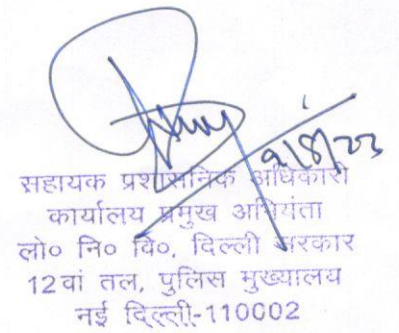 9/8/23
सहायक प्रशासनिक अधिकारी
कार्यालय प्रमुख अभियंता
लो० नि० वि०, दिल्ली सरकार
12वां तल, पुलिस मुख्यालय
नई दिल्ली-110002